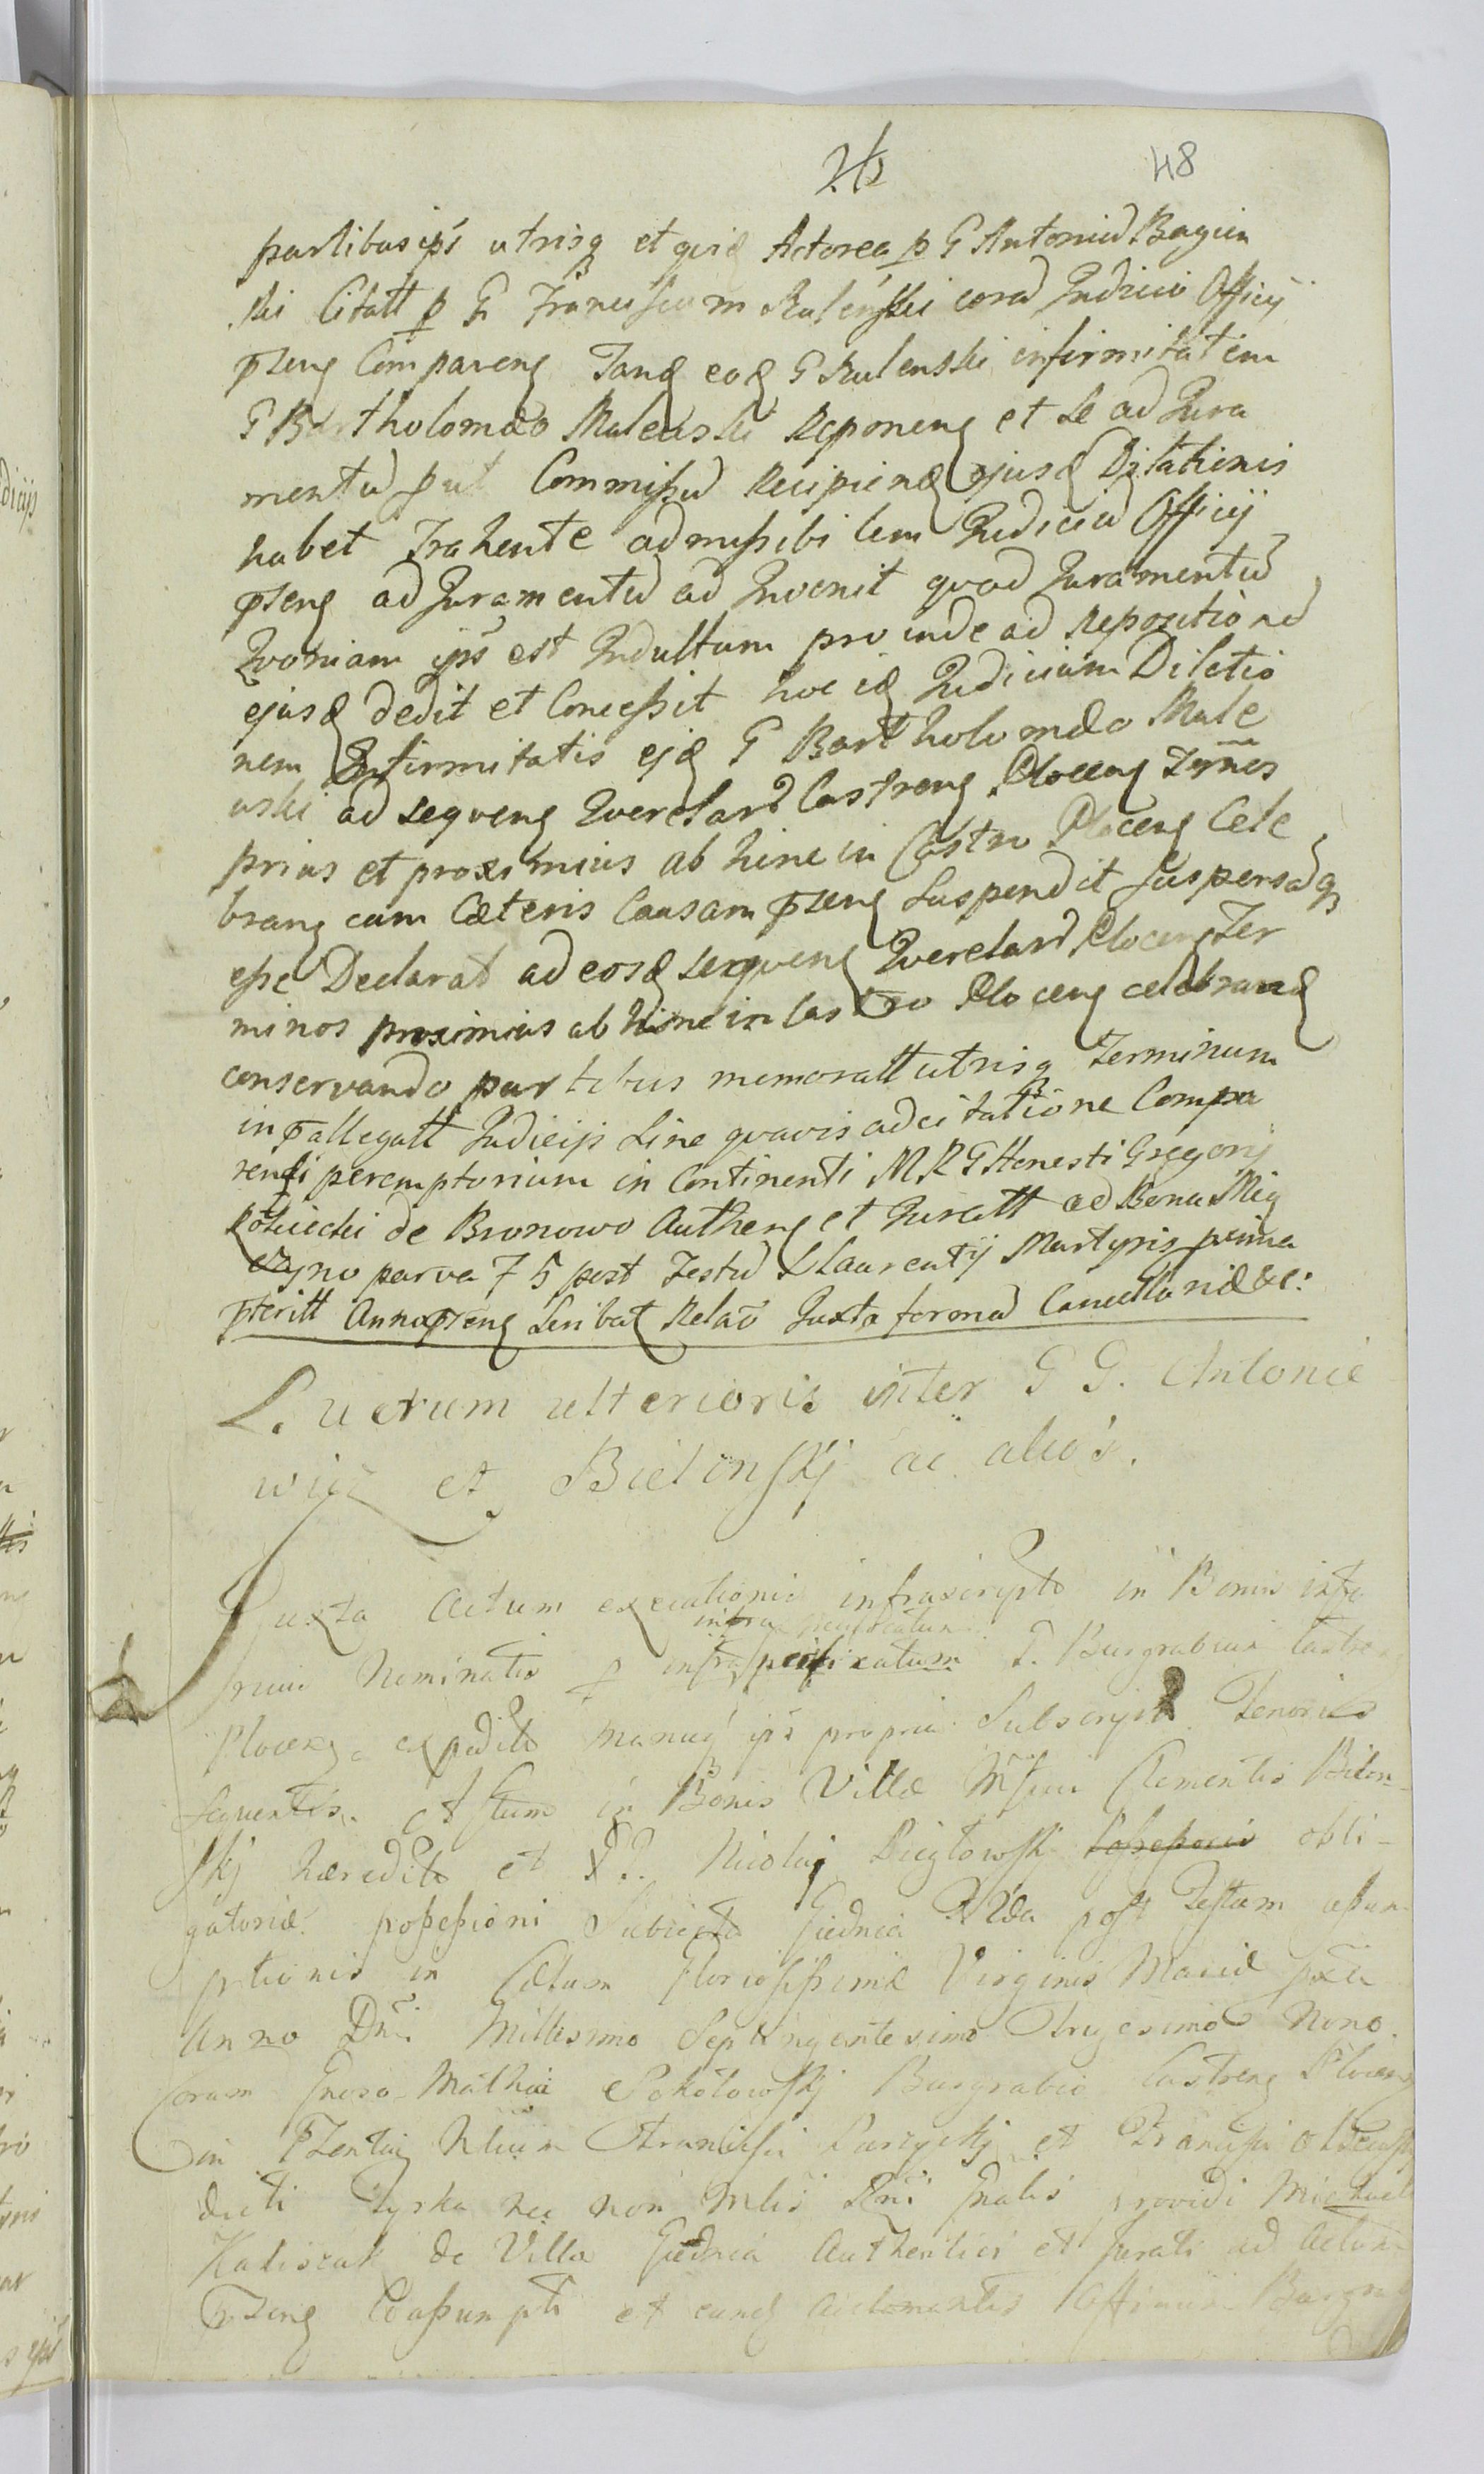 48
partibus ips utrisq et quid Actorea p G Antoniu Bagien
ski Citatt p G Franciscum Rulenski cora Judicio Officij
pseng Compareng Tanq eoq G Rulenski infirmitatem
G Bartholomæo Maleuski Reponeng et se ad Jura
mentu Commissu Recipieng ejusq Dilationis
habet Trahente admissibilem Judiciu Officij
pseng ad Juramentu ad Invenit quod Juramentu
Qvoniam ips est Indultum proinde ad Repositione
ejusq dedit et Concessit hoc id Judicium Dilatio
nem Infirmitatis ejq G Bartholomæo Male
uski ad seqveng Qverelar Castreng Ploceng Tynos
prius et proximius ab hinc in Castro Ploceng Cele
brang cum Cæteris Causam pseng Suspendit suspensaq
esse Declarat ad eosq seqveng Qverelar Ploceng Ter
minos proximius ab hinc in Castro Ploceng celebranq
conservando partibus memoratt utrisq Terminum
in pallegatt Judicijs sine qvavis adcitatione Compa
rendi peremptorium in Continenti M R G Honesti Gregorij
de Bronowo Autheng et Juratt ad Bona Mig
czyno parva 7 5 post Festu S Laurentij Martyris prima
pteritt Anno pseng Scribat Relao Juxta forma Cancellariæ &c:
Lucrum ulterioris inter G G. Antonie
wicz et Bielinskj ac alios.
Juxta Actum executionis infrascripto in Bonis infra
infra
rius Nominatis p infraspecificatum G. Burgrabium Castre
Ploceng expedito manuq ips propria Subscripto Tenoris
Sequentis. Actum in Bonis Villæ Clementis Bilen-
skj hæredito et G. Nicolaj possessoris obli-
gatoriæ possessioni Subjecto Giednia post Festum assum-
ptionis in Cælum Gloriosissimæ Virginis Mariæ
Anno Dni Millesimo Septingentesimo Trigesimo Nono.
Coram Gnoso Mathia Sokołowskj Burgrabio Castreng Ploceng
in Psentia Nlium Francisci et Francisci
dicti Tyska nec non Mlis Rni Gnalis providi Michaelis
Kaliszak de Villa Giednia Authentici et Jurati ad Actum
Pseng Coassumpti et eunq Officium Burgra